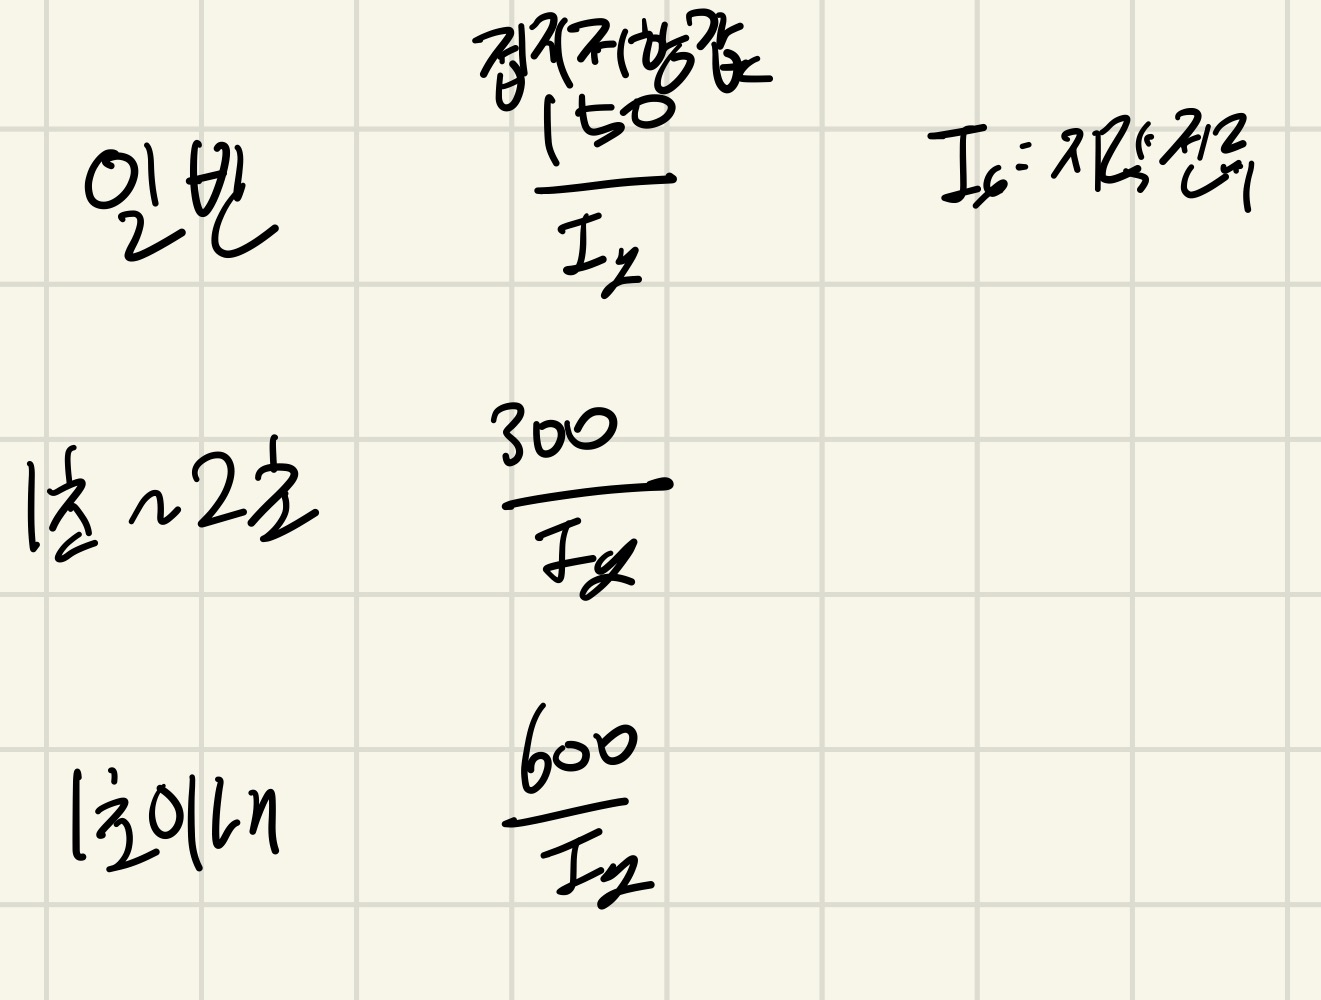 접지저항값
일반 150/Ig Ig = 지락전류
1초 ~ 2초 300/Ig
1초이내 600/Ig